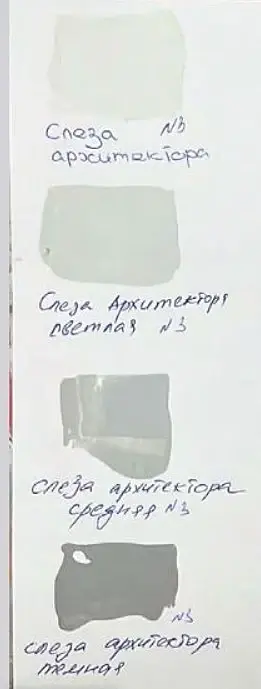 Слеза N3
архитектора
Слеза Архитектора
светлая N3
слеза архитектора
средняя N3
N3
слеза архитектора
темная